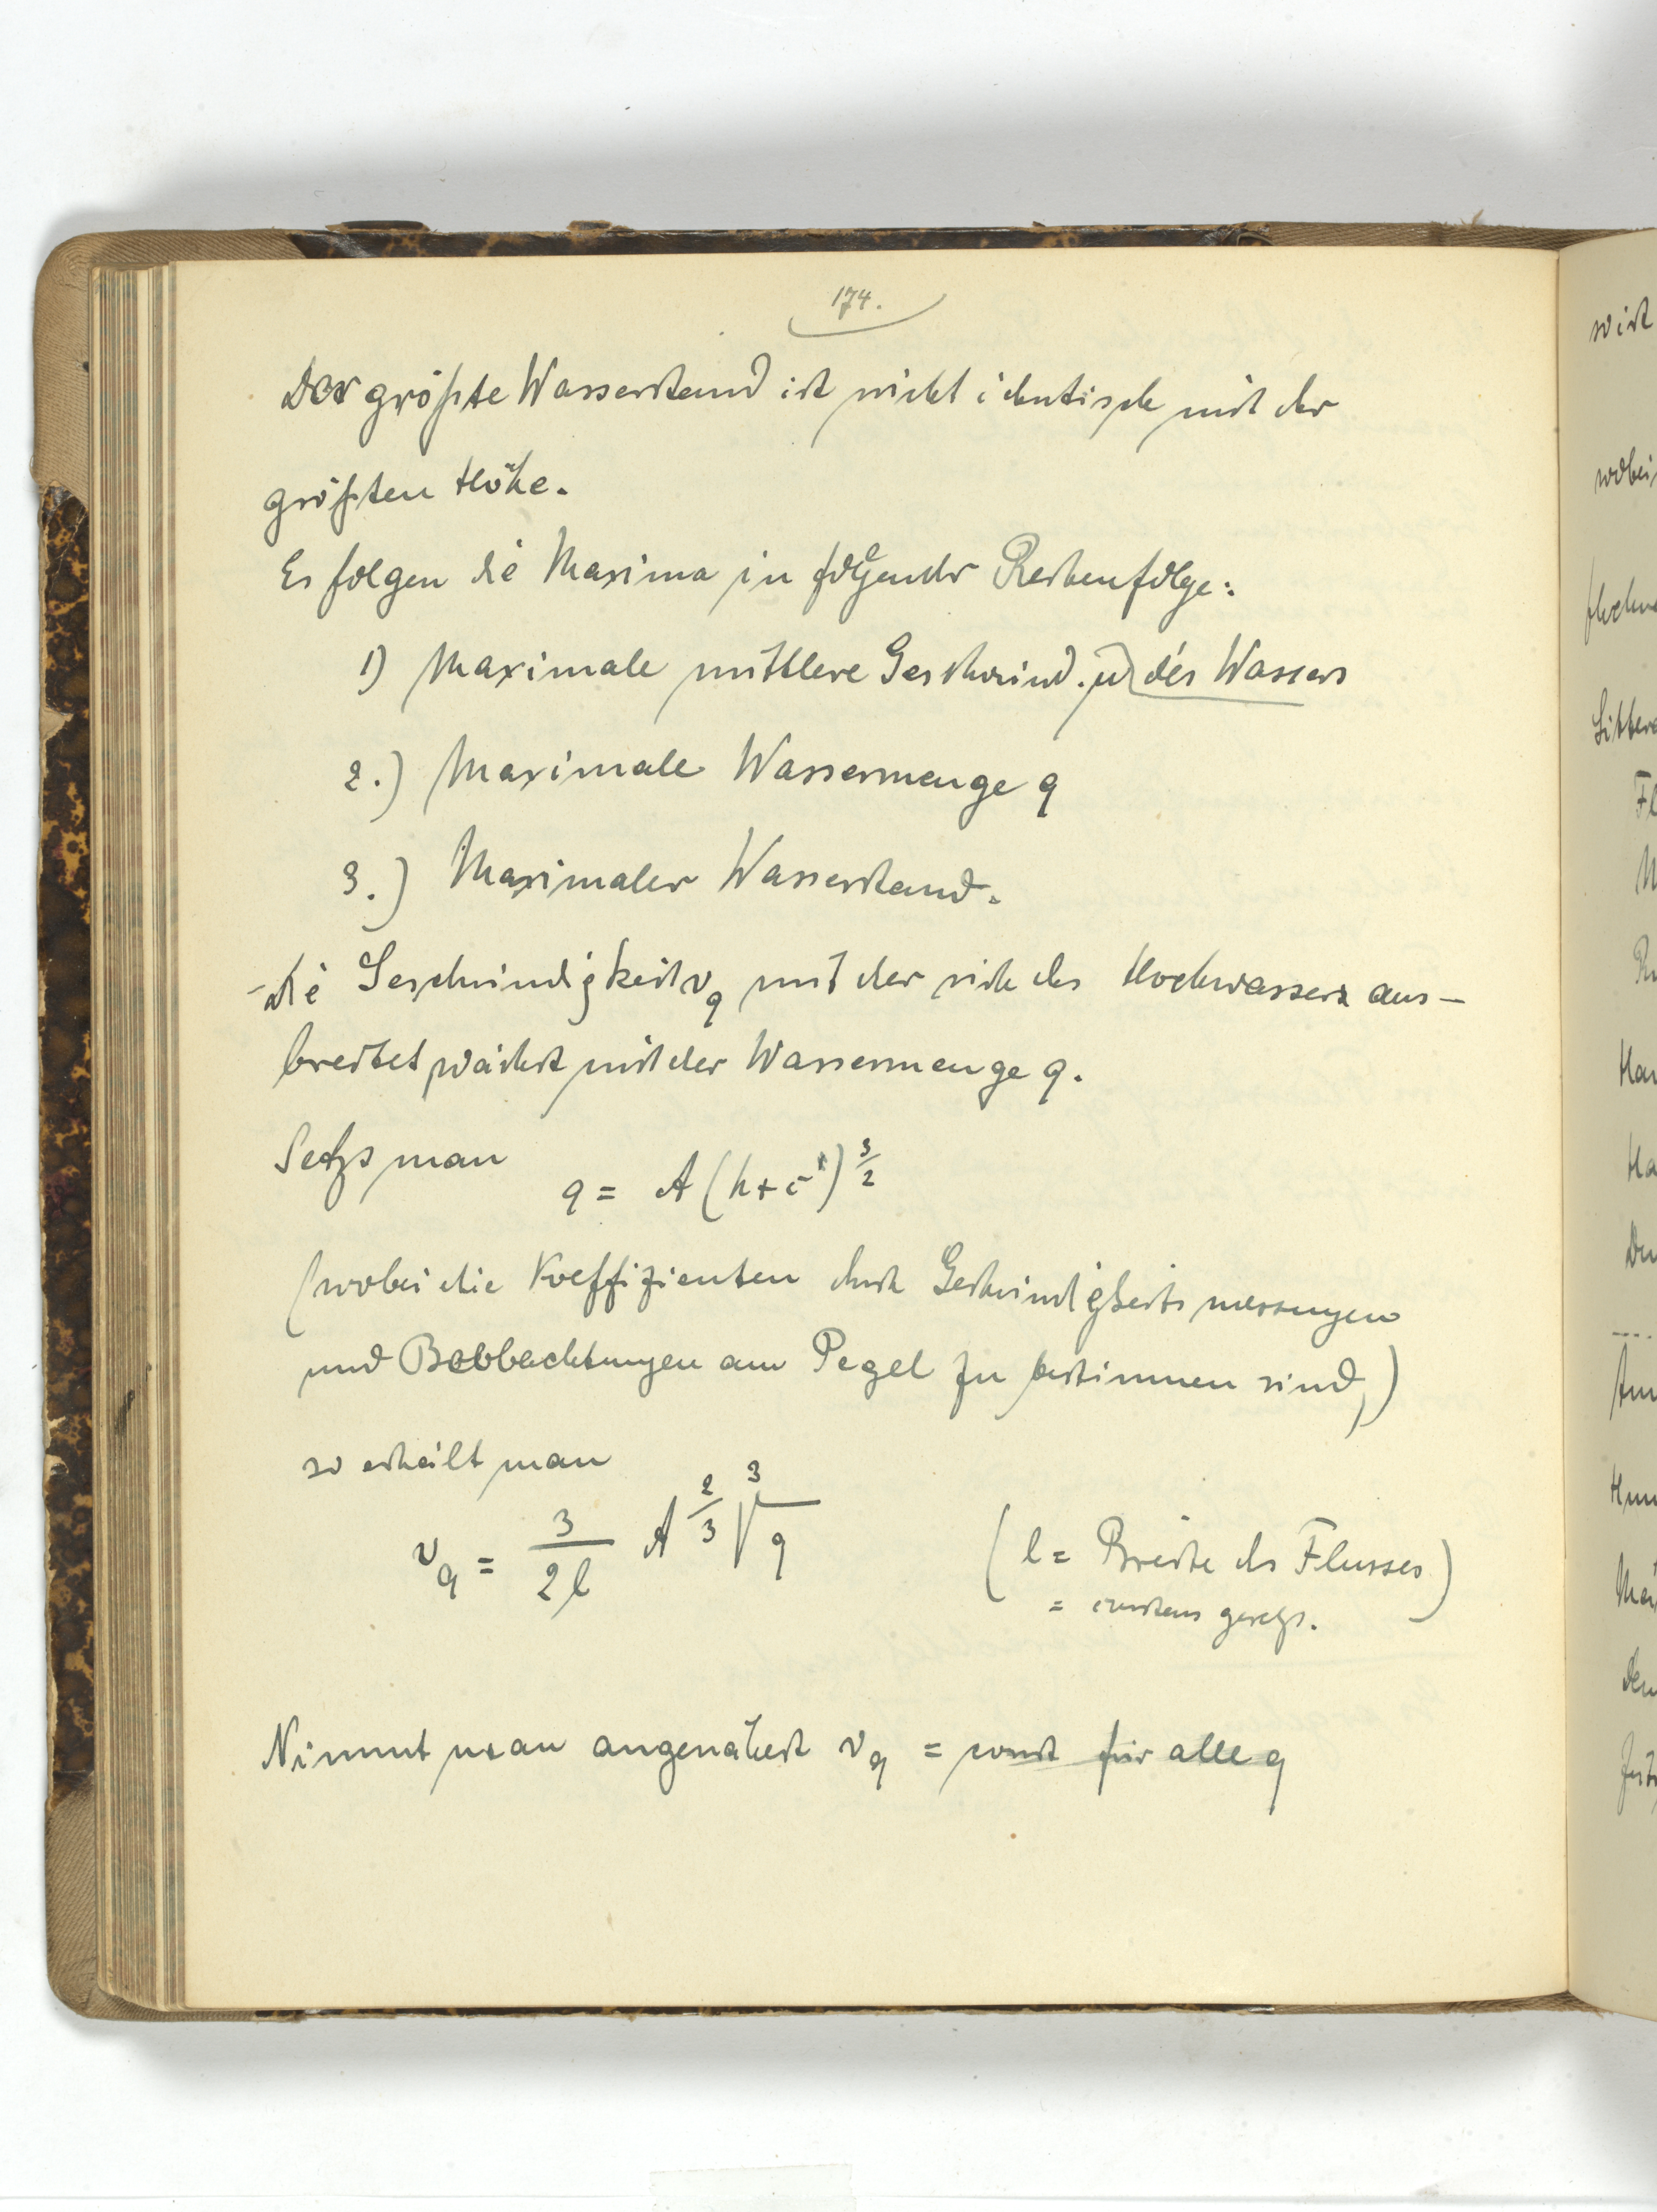 174.
Der größte Wasserstand ist nicht identisch mit der
größten Höhe.
Es folgen die Maxima in folgender Reihenfolge:
1) Maximale mittlere Geschwind. u des Wassers
2.) Maximale Wassermenge q
3.) Maximaler Wasserstand.
Die Geschwindigkeit v_q mit der sich das Hochwasser aus-
breitet wächst mit der Wassermenge q.
Setzt man
q = A (h + c)^{3/2}
(wobei die Koeffizienten durch Geschwindigkeitsmessungen
und Beobbachtungen am Pegel zu bestimmen sind,)
so erhält man
v_q = \frac{3}{2l} A^{2/3} \sqrt[3]{q} (l = Breite des Flusses)
= constans gesetzt.
Nimmt man angenähert v_q = const für alle q
wird
wobei